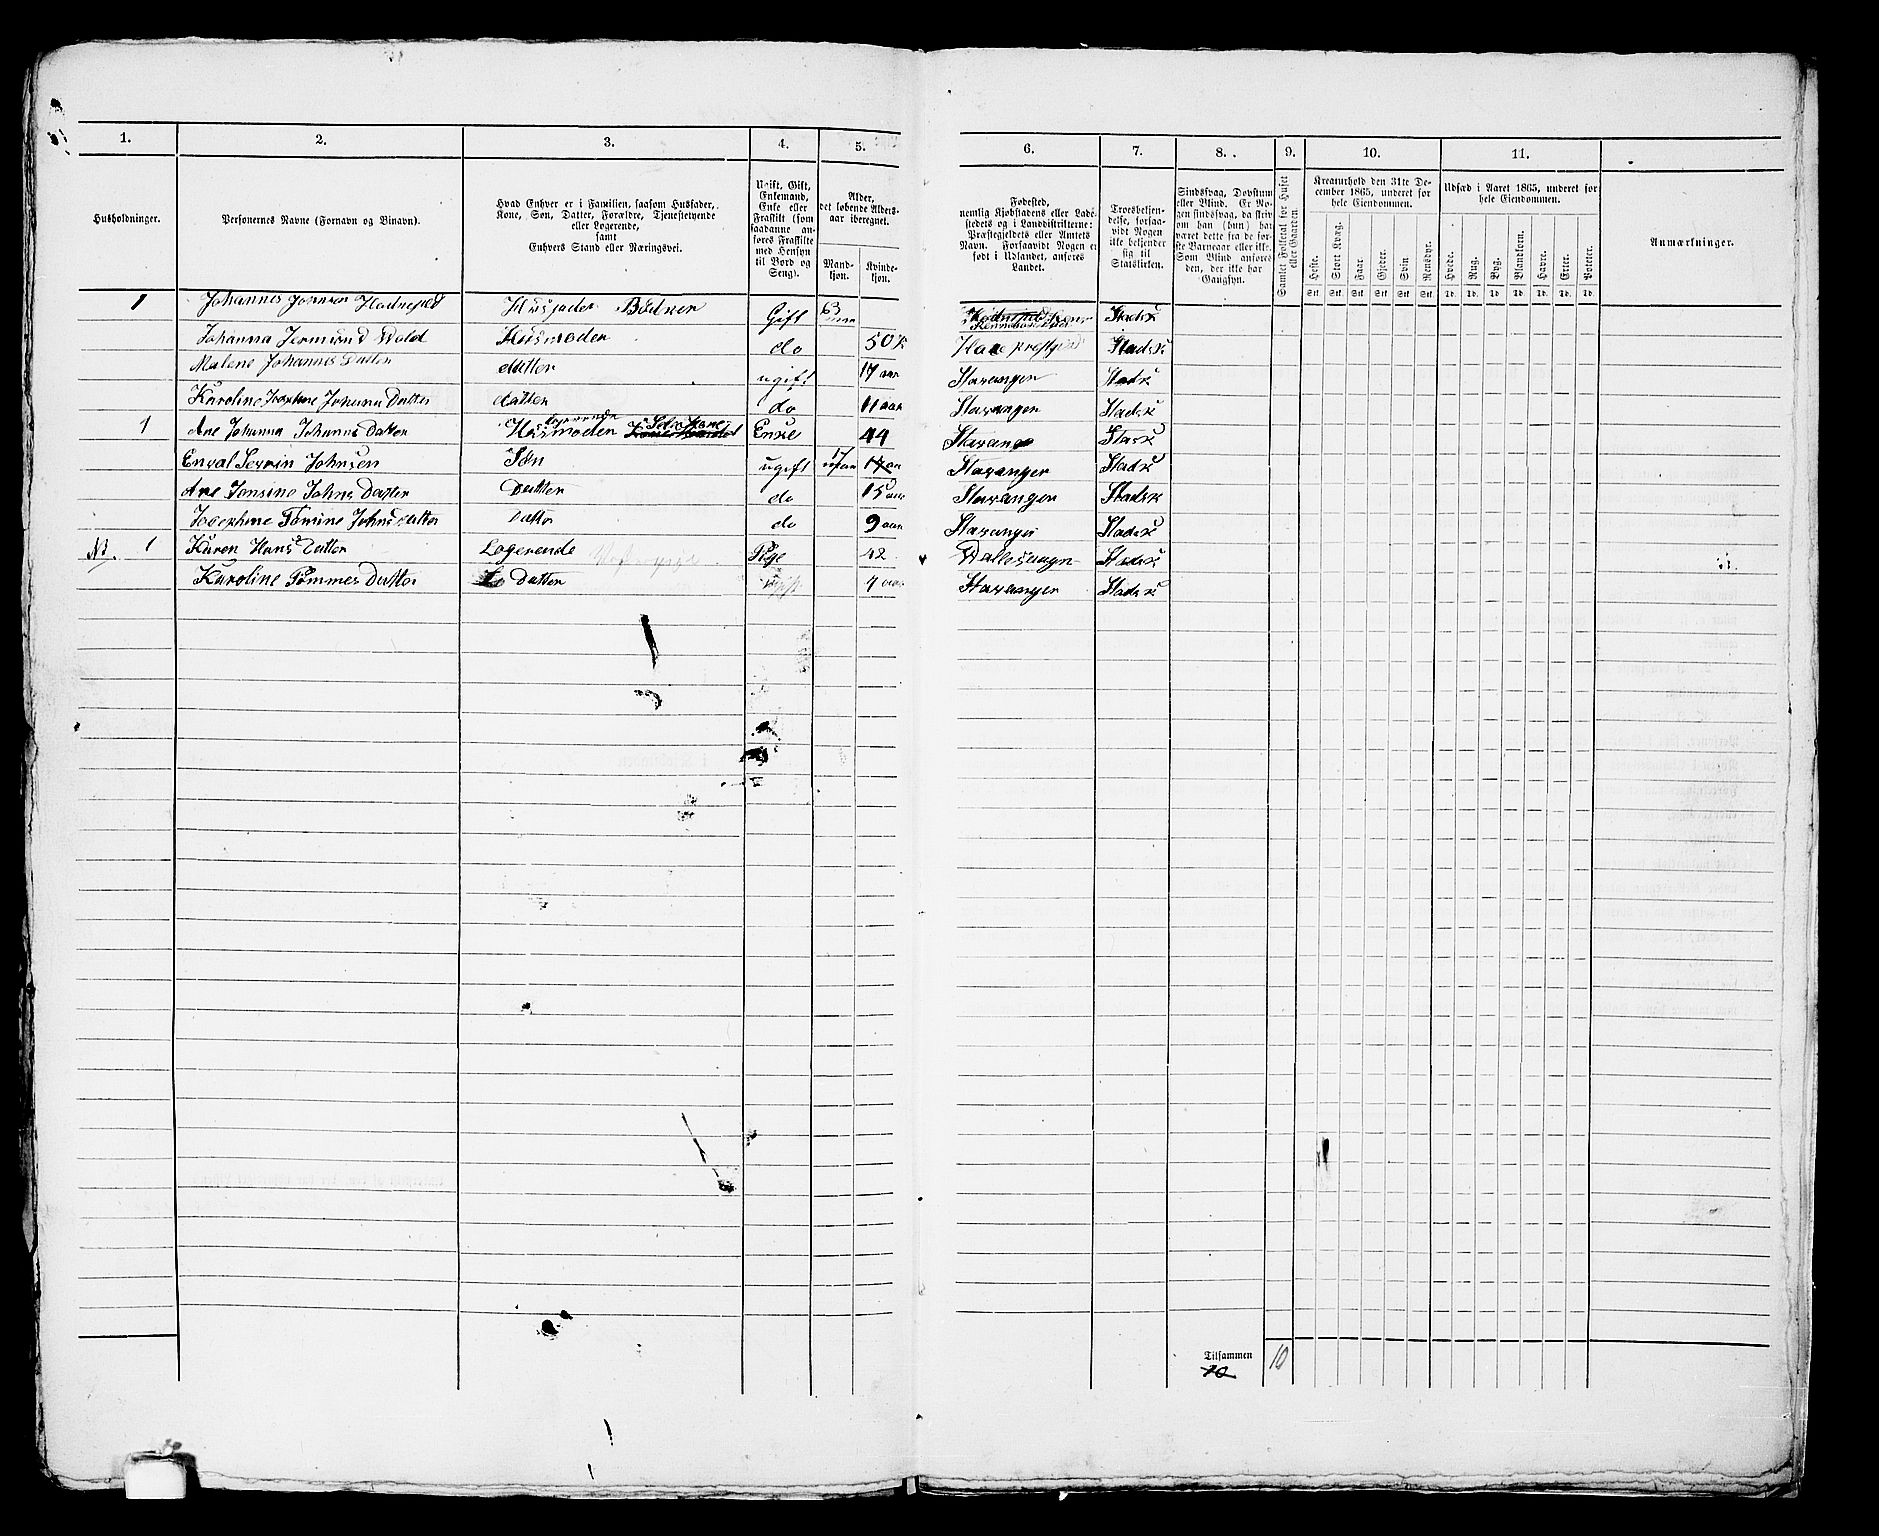 1. 2. 3. 4. 5. 6. 7. 8. 9. 10. 11.
Husholdninger.
Personernes Navne (Fornavn og Binavn).
Hvad Enhver er i Familien, saasom Husfader,
Kone, Søn, Datter, Forældre, Tjenestetyende
eller Logerende,
samt
Enhvers Stand eller Næringsvei.
Ugift, Gift,
Enkemand,
Enke eller
Fraskilt (som
saadanne an-
føres Fraskilte
med Hensyn
til Bord og
Seng).
Alder,
det løbende Alders-
aar iberegnet.
Mand-
kjøn.
Kvinde-
kjøn.
Fødested,
nemlig Kjøbstadens eller Lade-
stedets og i Landdistrikterne:
Præstegjeldets eller Amtets
Navn. Forsaavidt Nogen er
født i Udlandet, anføres
Landet.
Troesbekjen-
delse, forsaa-
vidt Nogen
ikke bekjender
sig til
Statskirken.
Sindssvag, Døvstum
eller Blind. Er No-
gen sindssvag, da skriv
om han (hun) har
været dette fra de før-
ste Barneaar eller ikke.
Som Blind anføres
den, der ikke har
Gangsyn.
Samlet Folketal for Huset
eller Gaarden.
Kreaturhold den 31te De-
cember 1865, underet for
hele Eiendommen.
Heste. Stort Kvæg. Faar. Gjeder. Svin. Rensdyr.
Stk. Stk. Stk. Stk. Stk. Stk.
Udsæd i Aaret 1865, underet for
hele Eiendommen.
Hvede. Rug. Byg. Blandkorn. Havre. Erter. Poteter.
Td. Td. Td. Td. Td. Td. Td.
Anmærkninger.
1 Johannes Jonnson Husfader Bødker Gift 63 aar Stadsk
Johanna Husmoder do 50 Haae prestgield Stadsk
Malene Johannes Datter datter ugift 17 aar Stavanger Stadsk
Karoline Josephine Johanna Datter datter do 11 aar Stavanger Stadsk
1 Ane Johanna Johannes Datter Husmoder logerende Enke 44 Stavang Stadsk
Johnsen Søn ugift 17 aar Stavanger Stadsk
Ane Jensine Johns Datter Datter do 15 aar Stavanger Stadsk
Josephine Tomine Johns datter Datter do 9 aar Stavanger Stadsk
1 Karen Hans Datter Logerende Pige 42 Stadsk
Karoline Tommes Datter Datter ugift 4 aar Stavanger Stadsk
Tilsammen 10
10